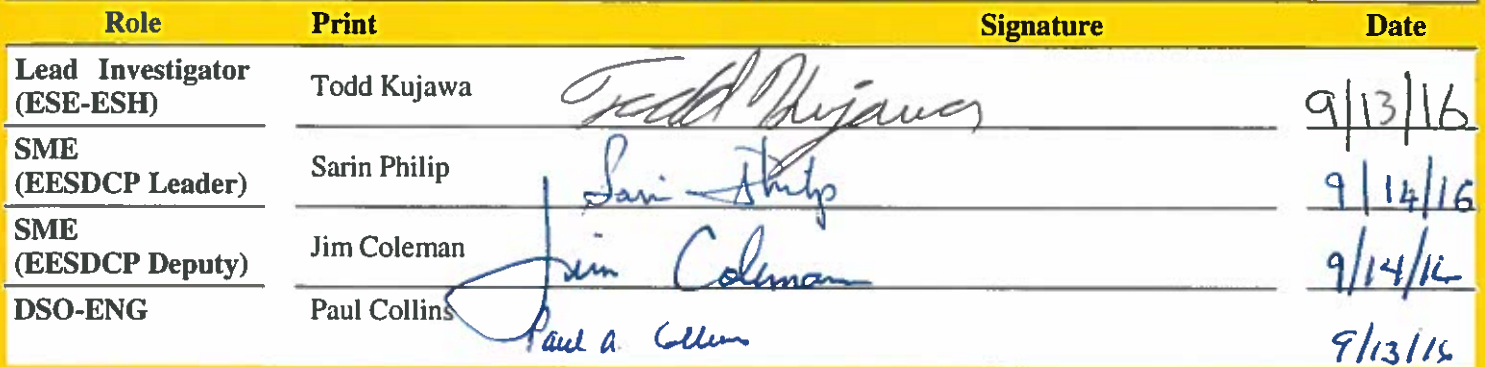 Role Print Signature Date
Lead Investigator
(ESE-ESH) Todd Kujawa Todd Kujawa 9/13/16
SME
(EESDCP Leader) Sarin Philip Sarin Philip 9/14/16
SME
(EESDCP Deputy) Jim Coleman Jim Coleman 9/14/16
DSO-ENG Paul Collins Paul A. Collins 9/13/16